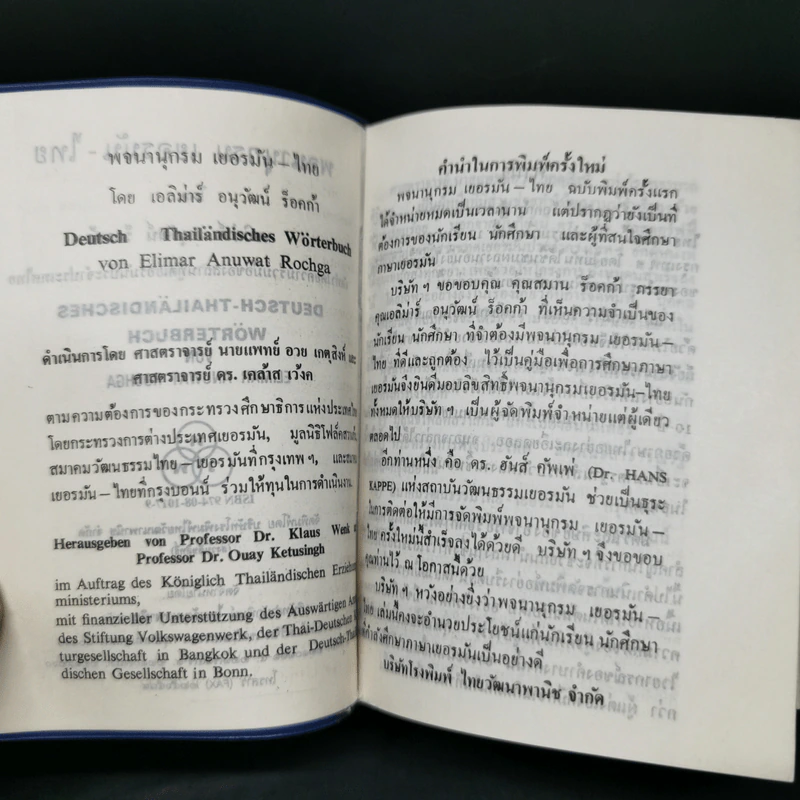 พจนานุกรม เยอรมัน – ไทย
โดย เอลิม่าร์ อนุวัฒน์ ร็อคก้า
Deutsch Thailändisches Wörterbuch
von Elimar Anuwat Rochga
ดำเนินการโดย ศาสตราจารย์ นายแพทย์ อวย เกตุสิงห์ และ
ศาสตราจารย์ ดร. เคล้าส เว้งค
ตามความต้องการของกระทรวงศึกษาธิการแห่งประเทศไทย
โดยกระทรวงการต่างประเทศเยอรมัน, มูลนิธิโฟล์คสวาเก้น
สมาคมวัฒนธรรมไทย – เยอรมันที่กรุงเทพ ฯ, และสมาคม
เยอรมัน – ไทยที่กรุงบอนน์ ร่วมให้ทุนในการดำเนินงาน
Herausgeben von Professor Dr. Klaus Wenk
Professor Dr. Ouay Ketusingh
im Auftrag des Königlich Thailändischen Erzieh
ministeriums,
mit finanzieller Unterstützung des Auswärtigen
des Stiftung Volkswagenwerk, der Thai-Deutschen
turgesellschaft in Bangkok und der Deutsch-Tha
dischen Gesellschaft in Bonn.
คำนำในการพิมพ์ครั้งใหม่
พจนานุกรม เยอรมัน – ไทย ฉบับพิมพ์ครั้งแรก
ได้จำหน่ายหมดเป็นเวลานาน แต่ปรากฏว่ายังเป็นที่
ต้องการของนักเรียน นักศึกษา และผู้ที่สนใจศึกษา
ภาษาเยอรมัน
บริษัท ฯ ขอขอบคุณ คุณสมาน ร็อคก้า ภรรยา
คุณเอลิม่าร์ อนุวัฒน์ ร็อคก้า ที่เห็นความจำเป็นของ
นักเรียน นักศึกษา ที่จำต้องมีพจนานุกรม เยอรมัน –
ไทย ที่ดีและถูกต้อง ไว้เป็นคู่มือเพื่อการศึกษาภาษา
เยอรมันจึงยินดีมอบลิขสิทธิ์พจนานุกรมเยอรมัน–ไทย
ทั้งหมดให้บริษัท ฯ เป็นผู้จัดพิมพ์จำหน่ายแต่ผู้เดียว
ตลอดไป
อีกท่านหนึ่ง คือ ดร. ฮันส์ คัพเพ่ (Dr. HANS
KAPPE) แห่งสถาบันวัฒนธรรมเยอรมัน ช่วยเป็นธุระ
ในการติดต่อให้มีการจัดพิมพ์พจนานุกรม เยอรมัน –
ไทย ครั้งใหม่นี้สำเร็จลงได้ด้วยดี บริษัท ฯ จึงขอขอบ
คุณท่านไว้ ณ โอกาสนี้ด้วย
บริษัท ฯ หวังอย่างยิ่งว่าพจนานุกรม เยอรมัน –
ไทย เล่มนี้คงจะอำนวยประโยชน์แก่นักเรียน นักศึกษา
ที่กำลังศึกษาภาษาเยอรมันเป็นอย่างดี
บริษัทโรงพิมพ์ ไทยวัฒนาพานิช จำกัด